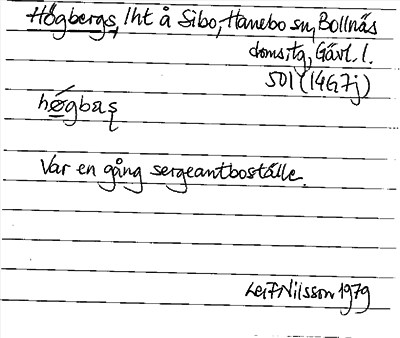 Högbergs, lht å Sibo, Hanebo sn, Bollnäs
doms.tg, Gävl. l.
501 (14G7j)
høgbaș
Var en gång sergeantboställe.
Leif Nilsson 1979